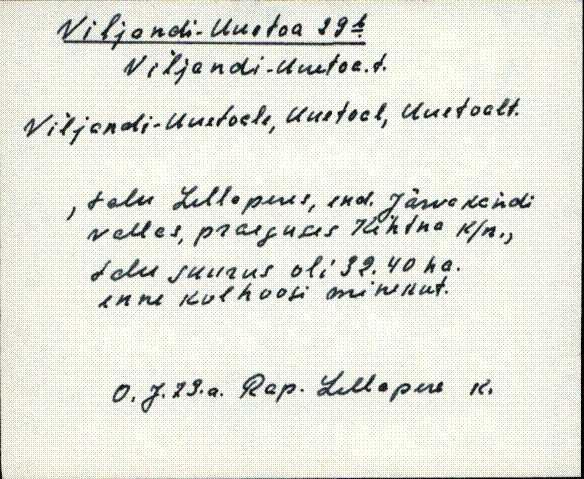 Viljandi-Uuetoa 29b
Viljandi-Uuetoa.t.
Viljandi-Uuetoale, Uuetoal, Uuetoalt.
, talu Lellaperes, end. Järvakandi
vallas, praeguses Kehtna k/n.,
talu suurus oli 32.40 ha.
enne kolhoosi minekut.
O. J. 79.a. Rap. Lellapere k.